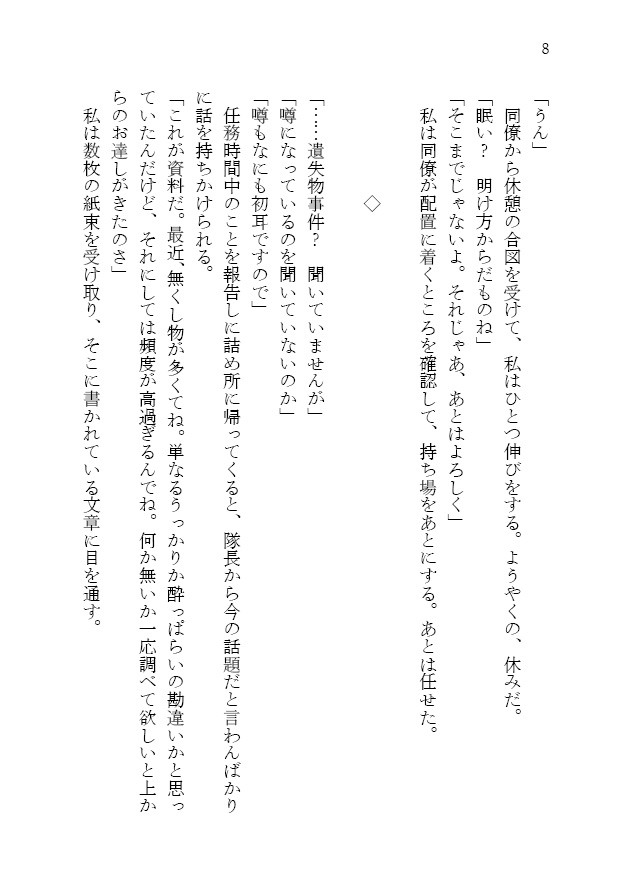 8
「うん」
　同僚から休憩の合図を受けて、私はひとつ伸びをする。ようやくの、休みだ。
「眠い？　明け方からだものね」
「そこまでじゃないよ。それじゃあ、あとはよろしく」
　私は同僚が配置に着くところを確認して、持ち場をあとにする。あとは任せた。
◇
「……遺失物事件？　聞いていませんが」
「噂になっているのを聞いていないのか」
「噂もなにも初耳ですので」
　任務時間中のことを報告しに詰め所に帰ってくると、隊長から今の話題だと言わんばかり
に話を持ちかけられる。
「これが資料だ。最近、無くし物が多くてね。単なるうっかりか酔っぱらいの勘違いかと思っ
ていたんだけど、それにしては頻度が高過ぎるんでね。何か無いか一応調べて欲しいと上か
らのお達しがきたのさ」
　私は数枚の紙束を受け取り、そこに書かれている文章に目を通す。